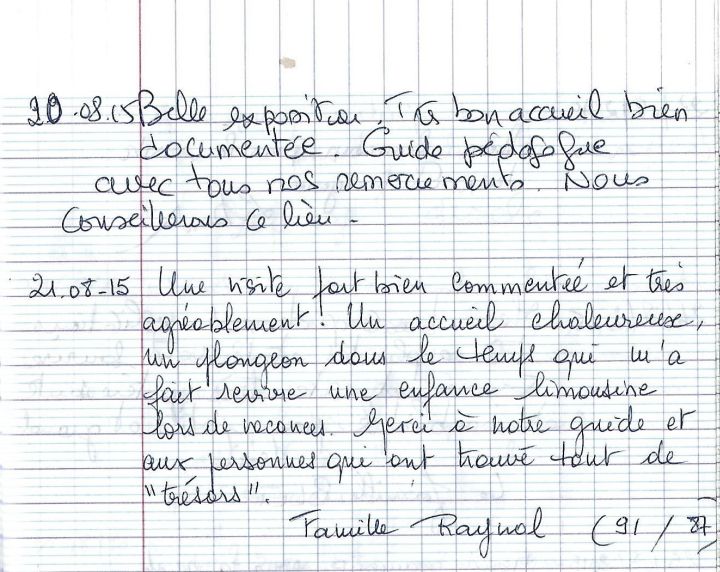 20.08.15 Belle exposition. Très bon accueil bien
documentée. Guide pédagogue
avec tous nos remerciements. Nous
Conseillerons ce lieu.
21.08-15 Une visite fort bien commentée et très
agréablement! Un accueil chaleureux,
un plongeon dans le temps qui m'a
fait revivre une enfance limousine
lors de vacances. Merci à notre guide et
aux personnes qui ont trouvé tout de
"trésors".
Famille Raynol (91 / 87)